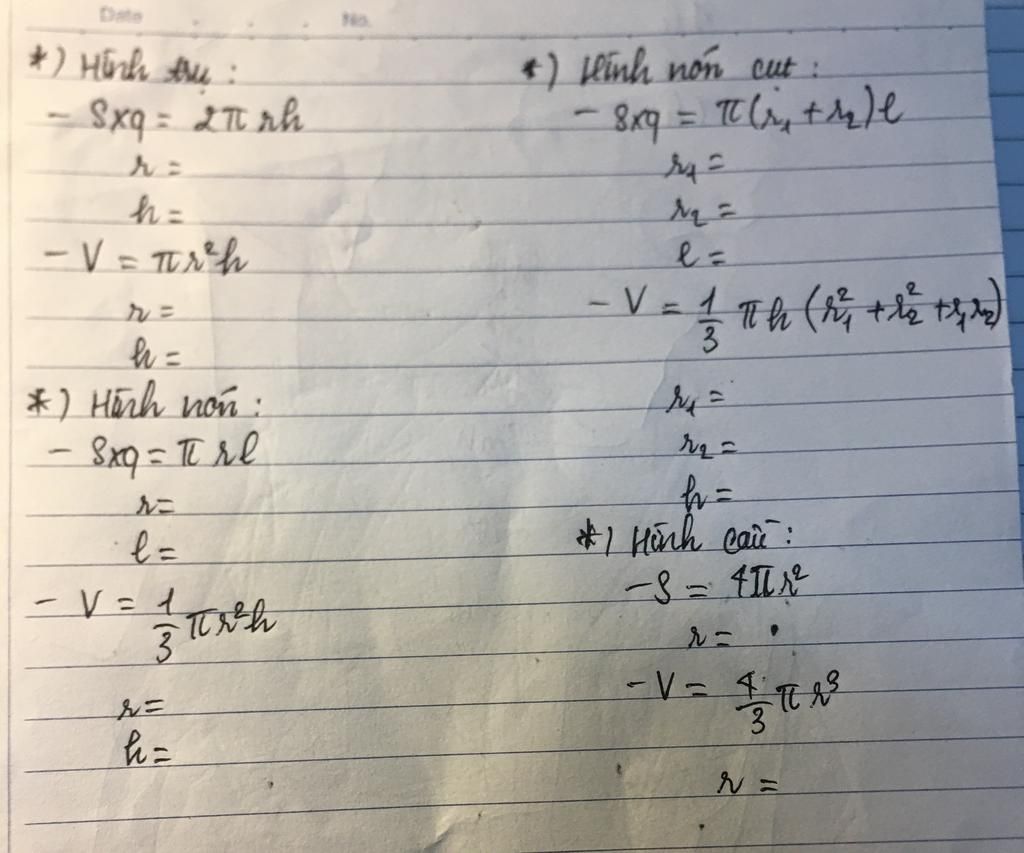 Date . . . No.
*) Hình trụ :
- Sxq = 2π rh
r =
h =
- V = πr²h
r =
h =
*) Hình nón :
- Sxq = π rl
r =
l =
- V = 1/3 πr²h
r =
h =
*) Hình nón cụt :
- Sxq = π(r₁ + r₂)l
r₁ =
r₂ =
l =
- V = 1/3 πh (r₁² + r₂² + r₁r₂)
r₁ =
r₂ =
h =
*) Hình cầu :
- S = 4πr²
r =
- V = 4/3 π r³
r =